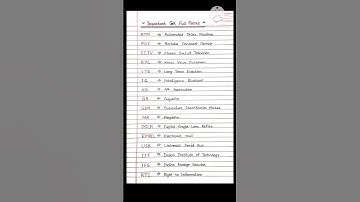 " Important GK Full Forms "
ATM → Automated Teller Machine
PDF → Portable Document Format
CCTV → Close Circuit Television
KYC → Know Your Customer
LTE → Long Term Evolution
IQ → Intelligence Quotient
4G → 4th Generation
GB → Gigabite
SIM → Subscriber Identification Module
MB → Megabite
DSLR → Digital Single Lens Reflex
EMAIL → Electronic mail
USB → Universal Serial Bus
IIT → Indian Institute of Technology
IFS → Indian Foreign Service
RTI → Right to Information